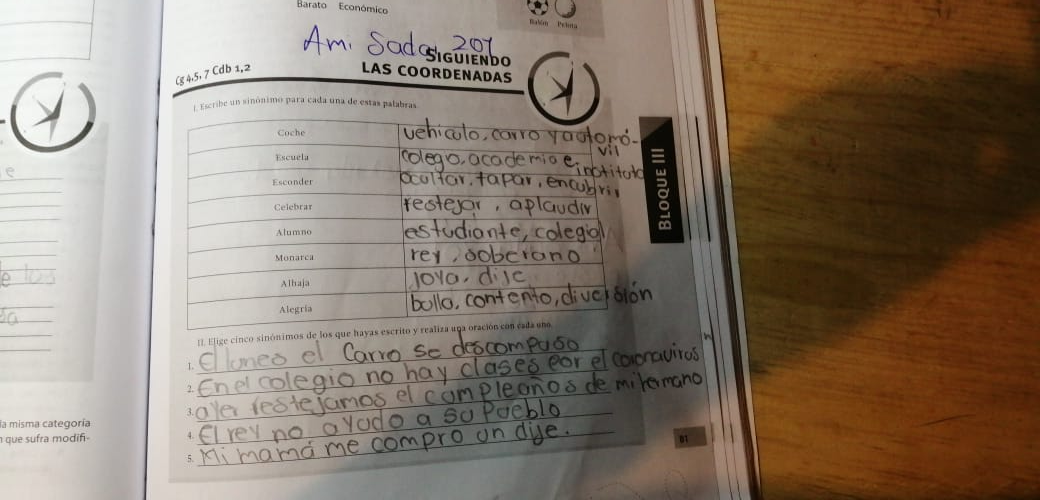 Barato Económico
Balón Pelota
Am. Sada 207
SIGUIENDO
LAS COORDENADAS
Cg 4,5, 7 Cdb 1,2
I. Escribe un sinónimo para cada una de estas palabras.
Coche vehiculo, carro y automó-
vil
Escuela colegio, academia e instituto
Esconder ocultar, tapar, encubrir
Celebrar festejar, aplaudir
Alumno estudiante, colegial
Monarca rey, soberano
Alhaja joya, dije
Alegría bulla, contento, diversión
BLOQUE III
II. Elige cinco sinónimos de los que hayas escrito y realiza una oración con cada uno.
1. El lunes el Carro se descompuso
2. En el colegio no hay clases por el coronavirus
3. ayer festejamos el cumpleaños de mi hermano
4. El rey no ayudo a su Pueblo
5. Mi mamá me compro un dije.
81
la misma categoría
que sufra modifi-